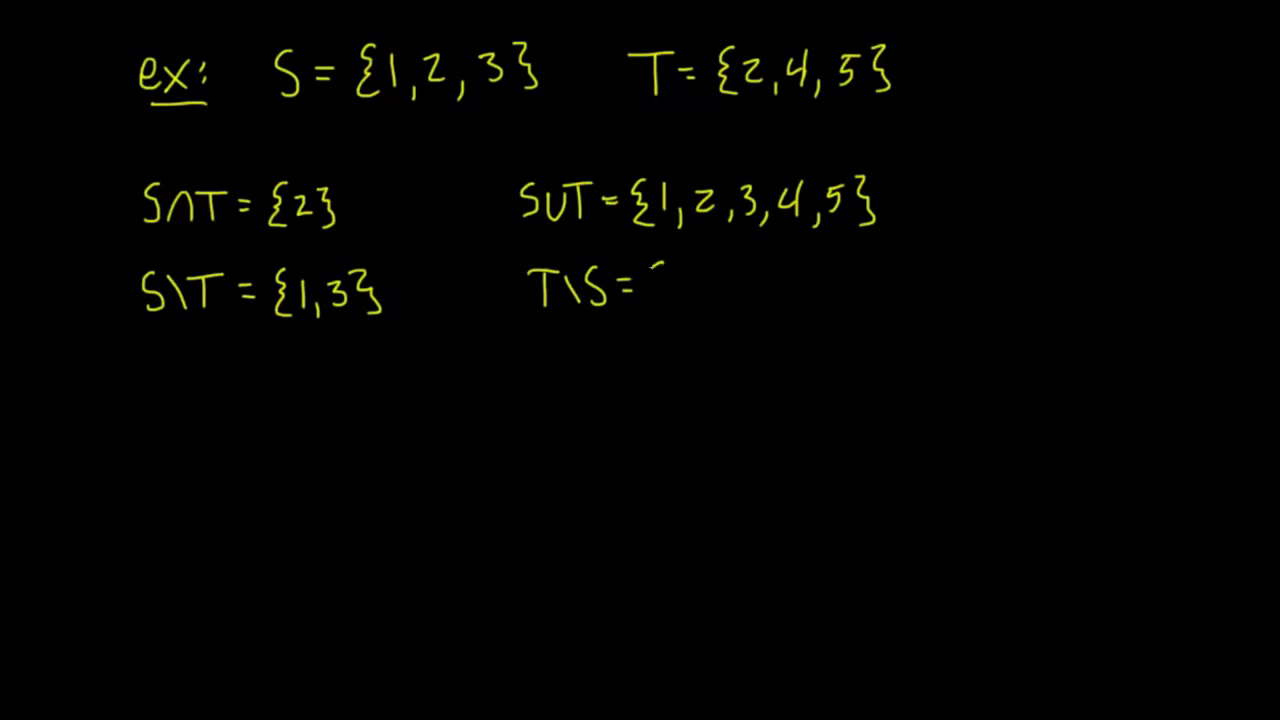 ex: S = {1, 2, 3} T = {2, 4, 5}
S∩T = {2} S∪T = {1, 2, 3, 4, 5}
S\T = {1, 3} T\S =